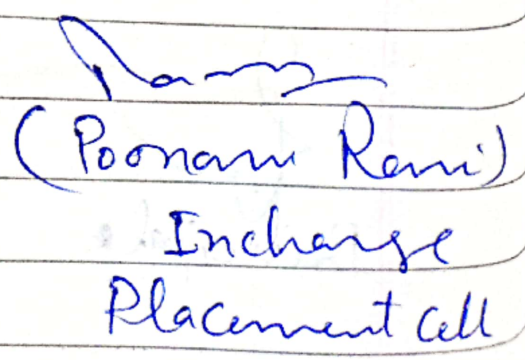 (Poonam Rani)
Incharge
Placement Cell